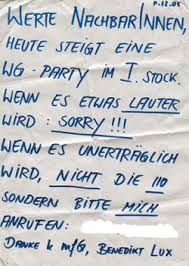 ?.12.05
WERTE NACHBARINNEN,
HEUTE STEIGT EINE
WG-PARTY IM I. STOCK.
WENN ES ETWAS LAUTER
WIRD: SORRY!!!
WENN ES UNERTRÄGLICH
WIRD, NICHT DIE 110
SONDERN BITTE MICH
ANRUFEN:
DANKE & MFG, BENEDIKT LUX